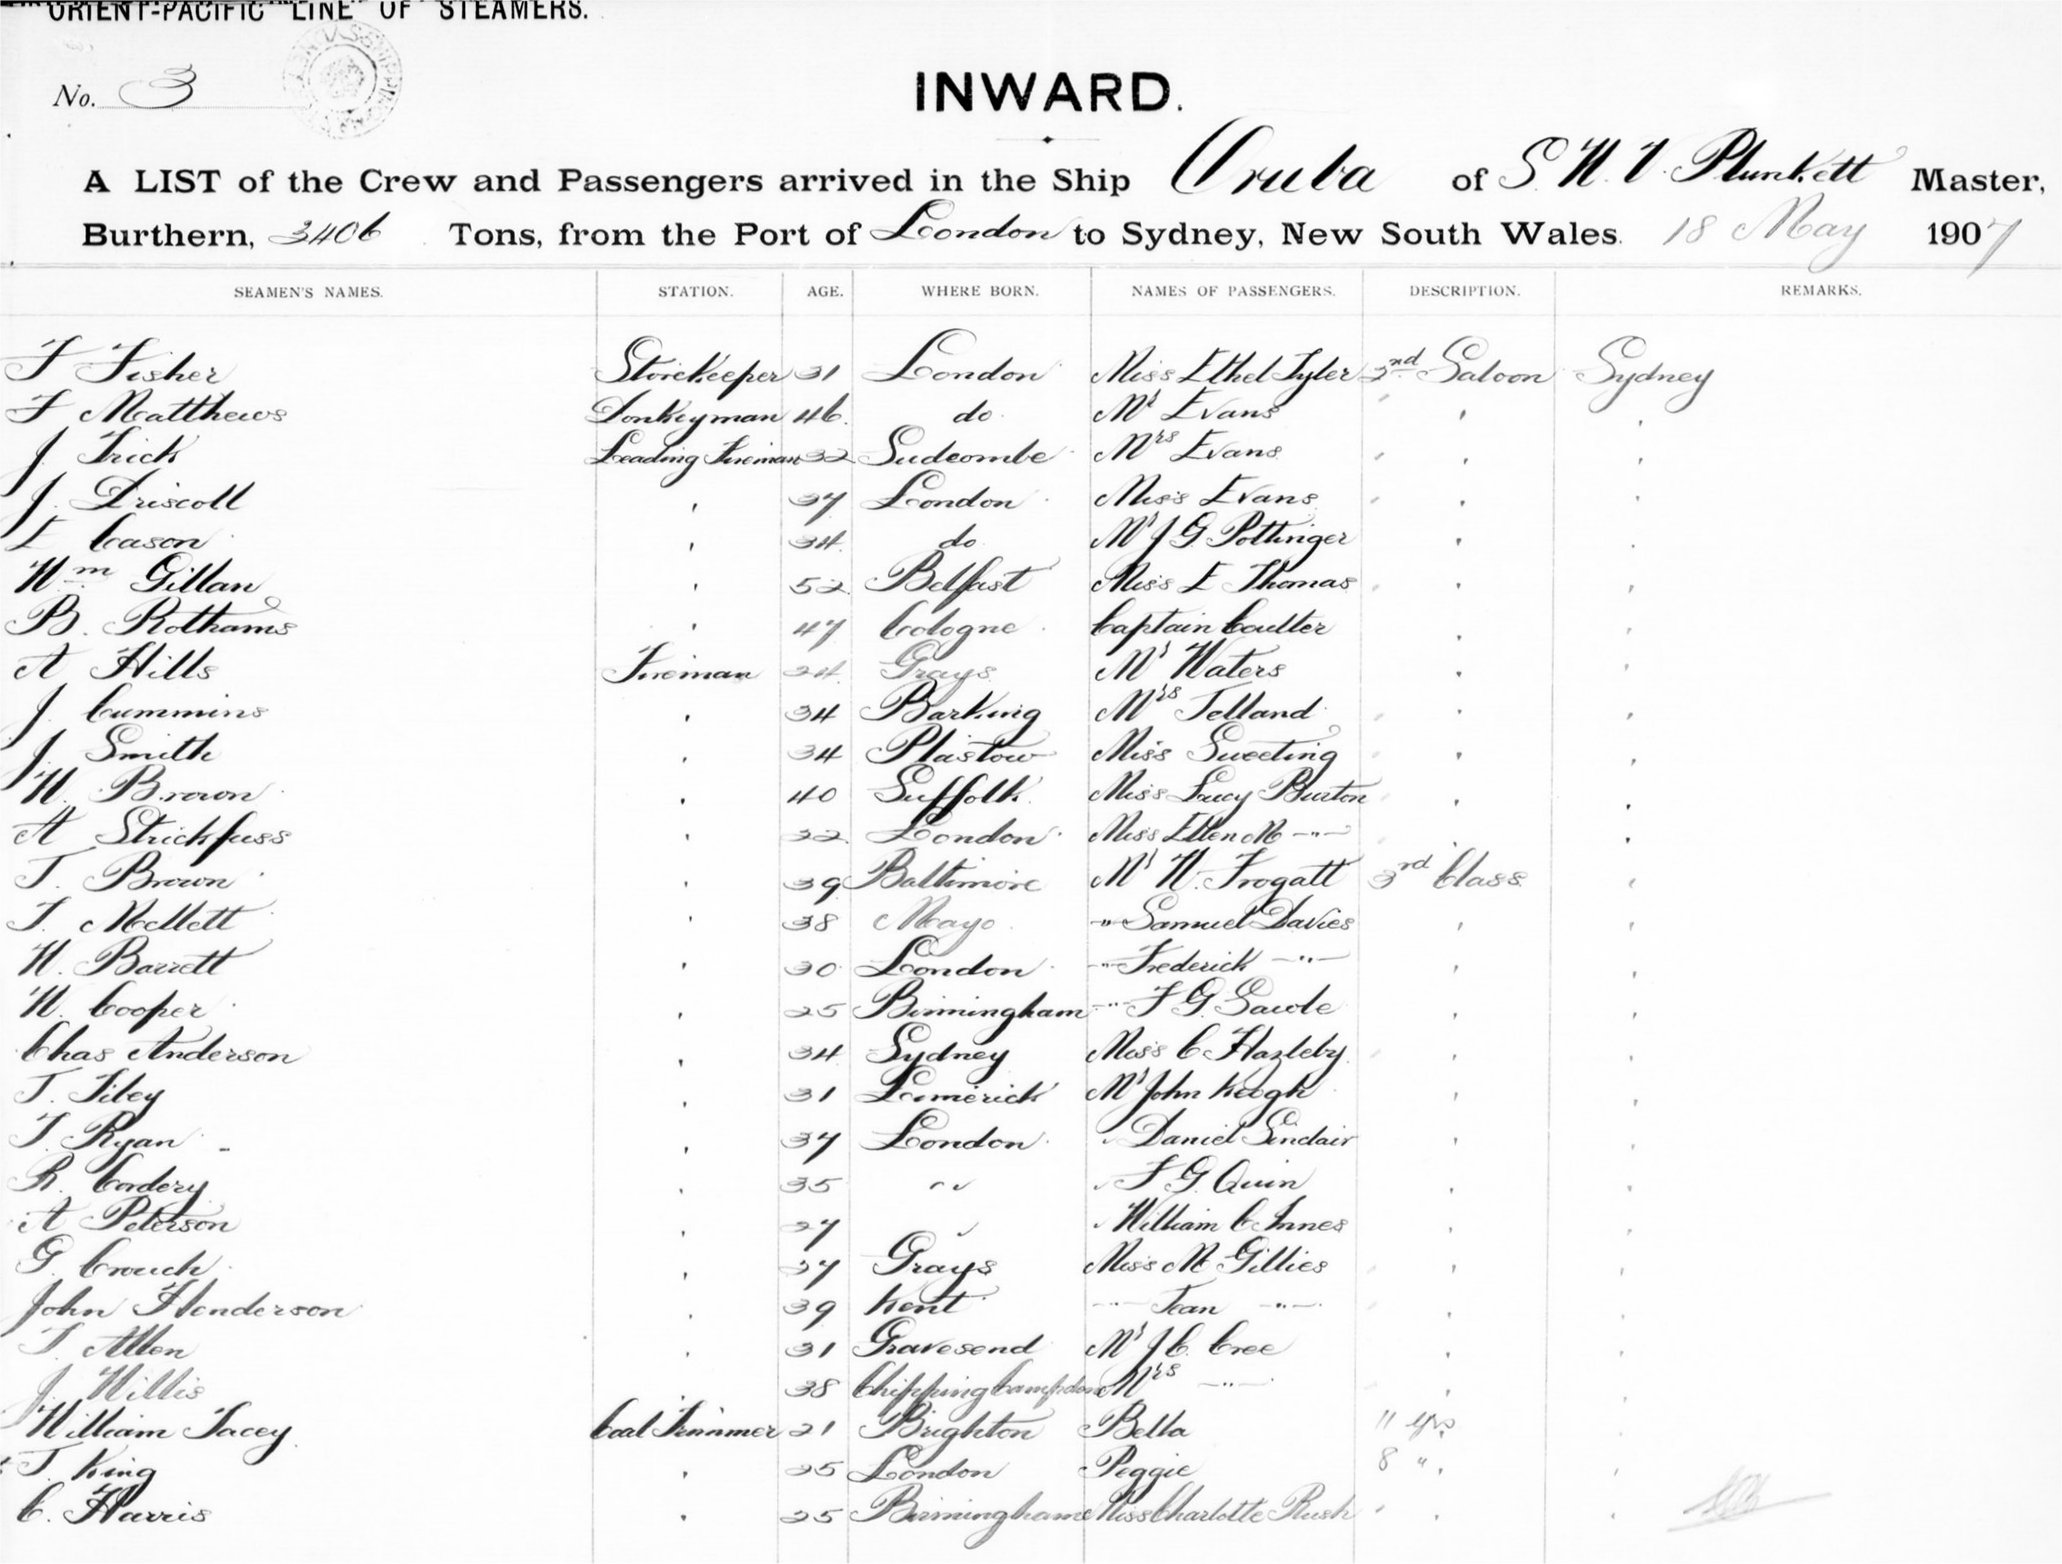 ORIENT-PACIFIC LINE OF STEAMERS.
No. 3
INWARD.
A LIST of the Crew and Passengers arrived in the Ship Oruba of S. W. V. Plunkett Master,
Burthern, 3406 Tons, from the Port of London to Sydney, New South Wales. 18 May 1907
SEAMEN'S NAMES. STATION. AGE. WHERE BORN. NAMES OF PASSENGERS. DESCRIPTION. REMARKS.
F Fisher Storekeeper 31 London Miss Ethel Tyler 2nd Saloon Sydney
F Matthews Donkeyman 46 do Mr Evans
J. Trick Leading Fireman 32 Sudcombe Mrs Evans
J. Driscoll 37 London Miss Evans
E Cason 34 do Mr J G Pottinger
Wm Gillan 52 Belfast Miss E Thomas
B. Rothams 47 Cologne Captain Coulter
A Hills Fireman 24 Grays Mr Waters
J. Cummins 34 Barking Mrs Telland
J. Smith 34 Plaistow Miss Sweeting
W. Brown 40 Suffolk Miss Lucy Burton
A Strickfuss 32 London Miss Ellen M -"-
T. Brown 39 Baltimore Mr W. Frogatt 3rd Class
T. Mellett 38 Mayo -"- Samuel Davies
W. Barrett 30 London -"- Frederick -"-
W. Cooper 25 Birmingham -"- F G Sawle
Chas Anderson 34 Sydney Miss C Hazleby
T. Filey 31 Limerick Mr John Keogh
T. Ryan 37 London " Daniel Sinclair
R. Cordery 35 " " " F G Quin
A Peterson 27 " " William C Innes
G. Crouch 27 Grays Miss M Gillies
John Henderson 39 Kent -"- Jean -"-
T. Allen 31 Gravesend Mr J C. Cree
J. Willis 38 Chipping Campden Mrs -"-
William Tacey Coal Trimmer 21 Brighton Bella 11 yrs
T. King 25 London Peggie 8 "
C. Harris 25 Birmingham Miss Charlotte Rush